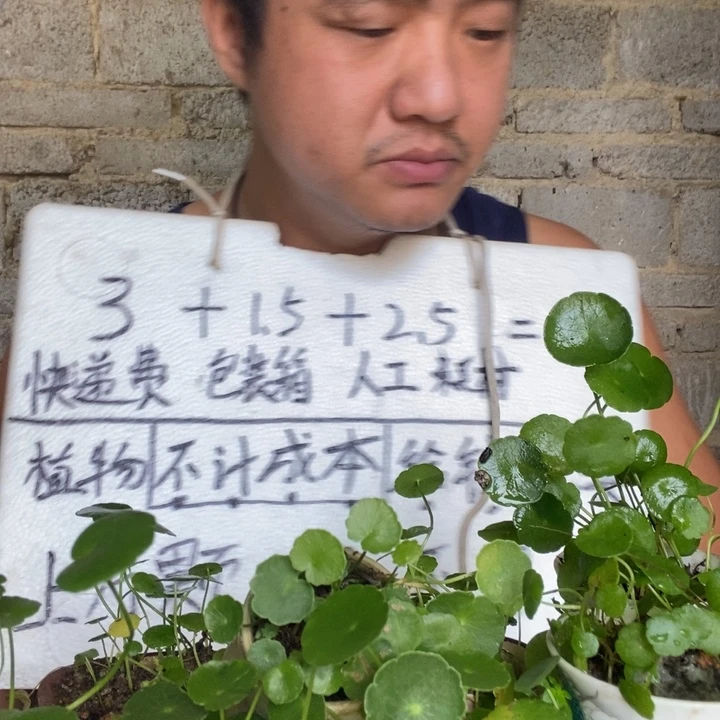 3 + 1.5 + 2.5 =
快递费 包装箱 人工 耗材
植物 不计成本
上